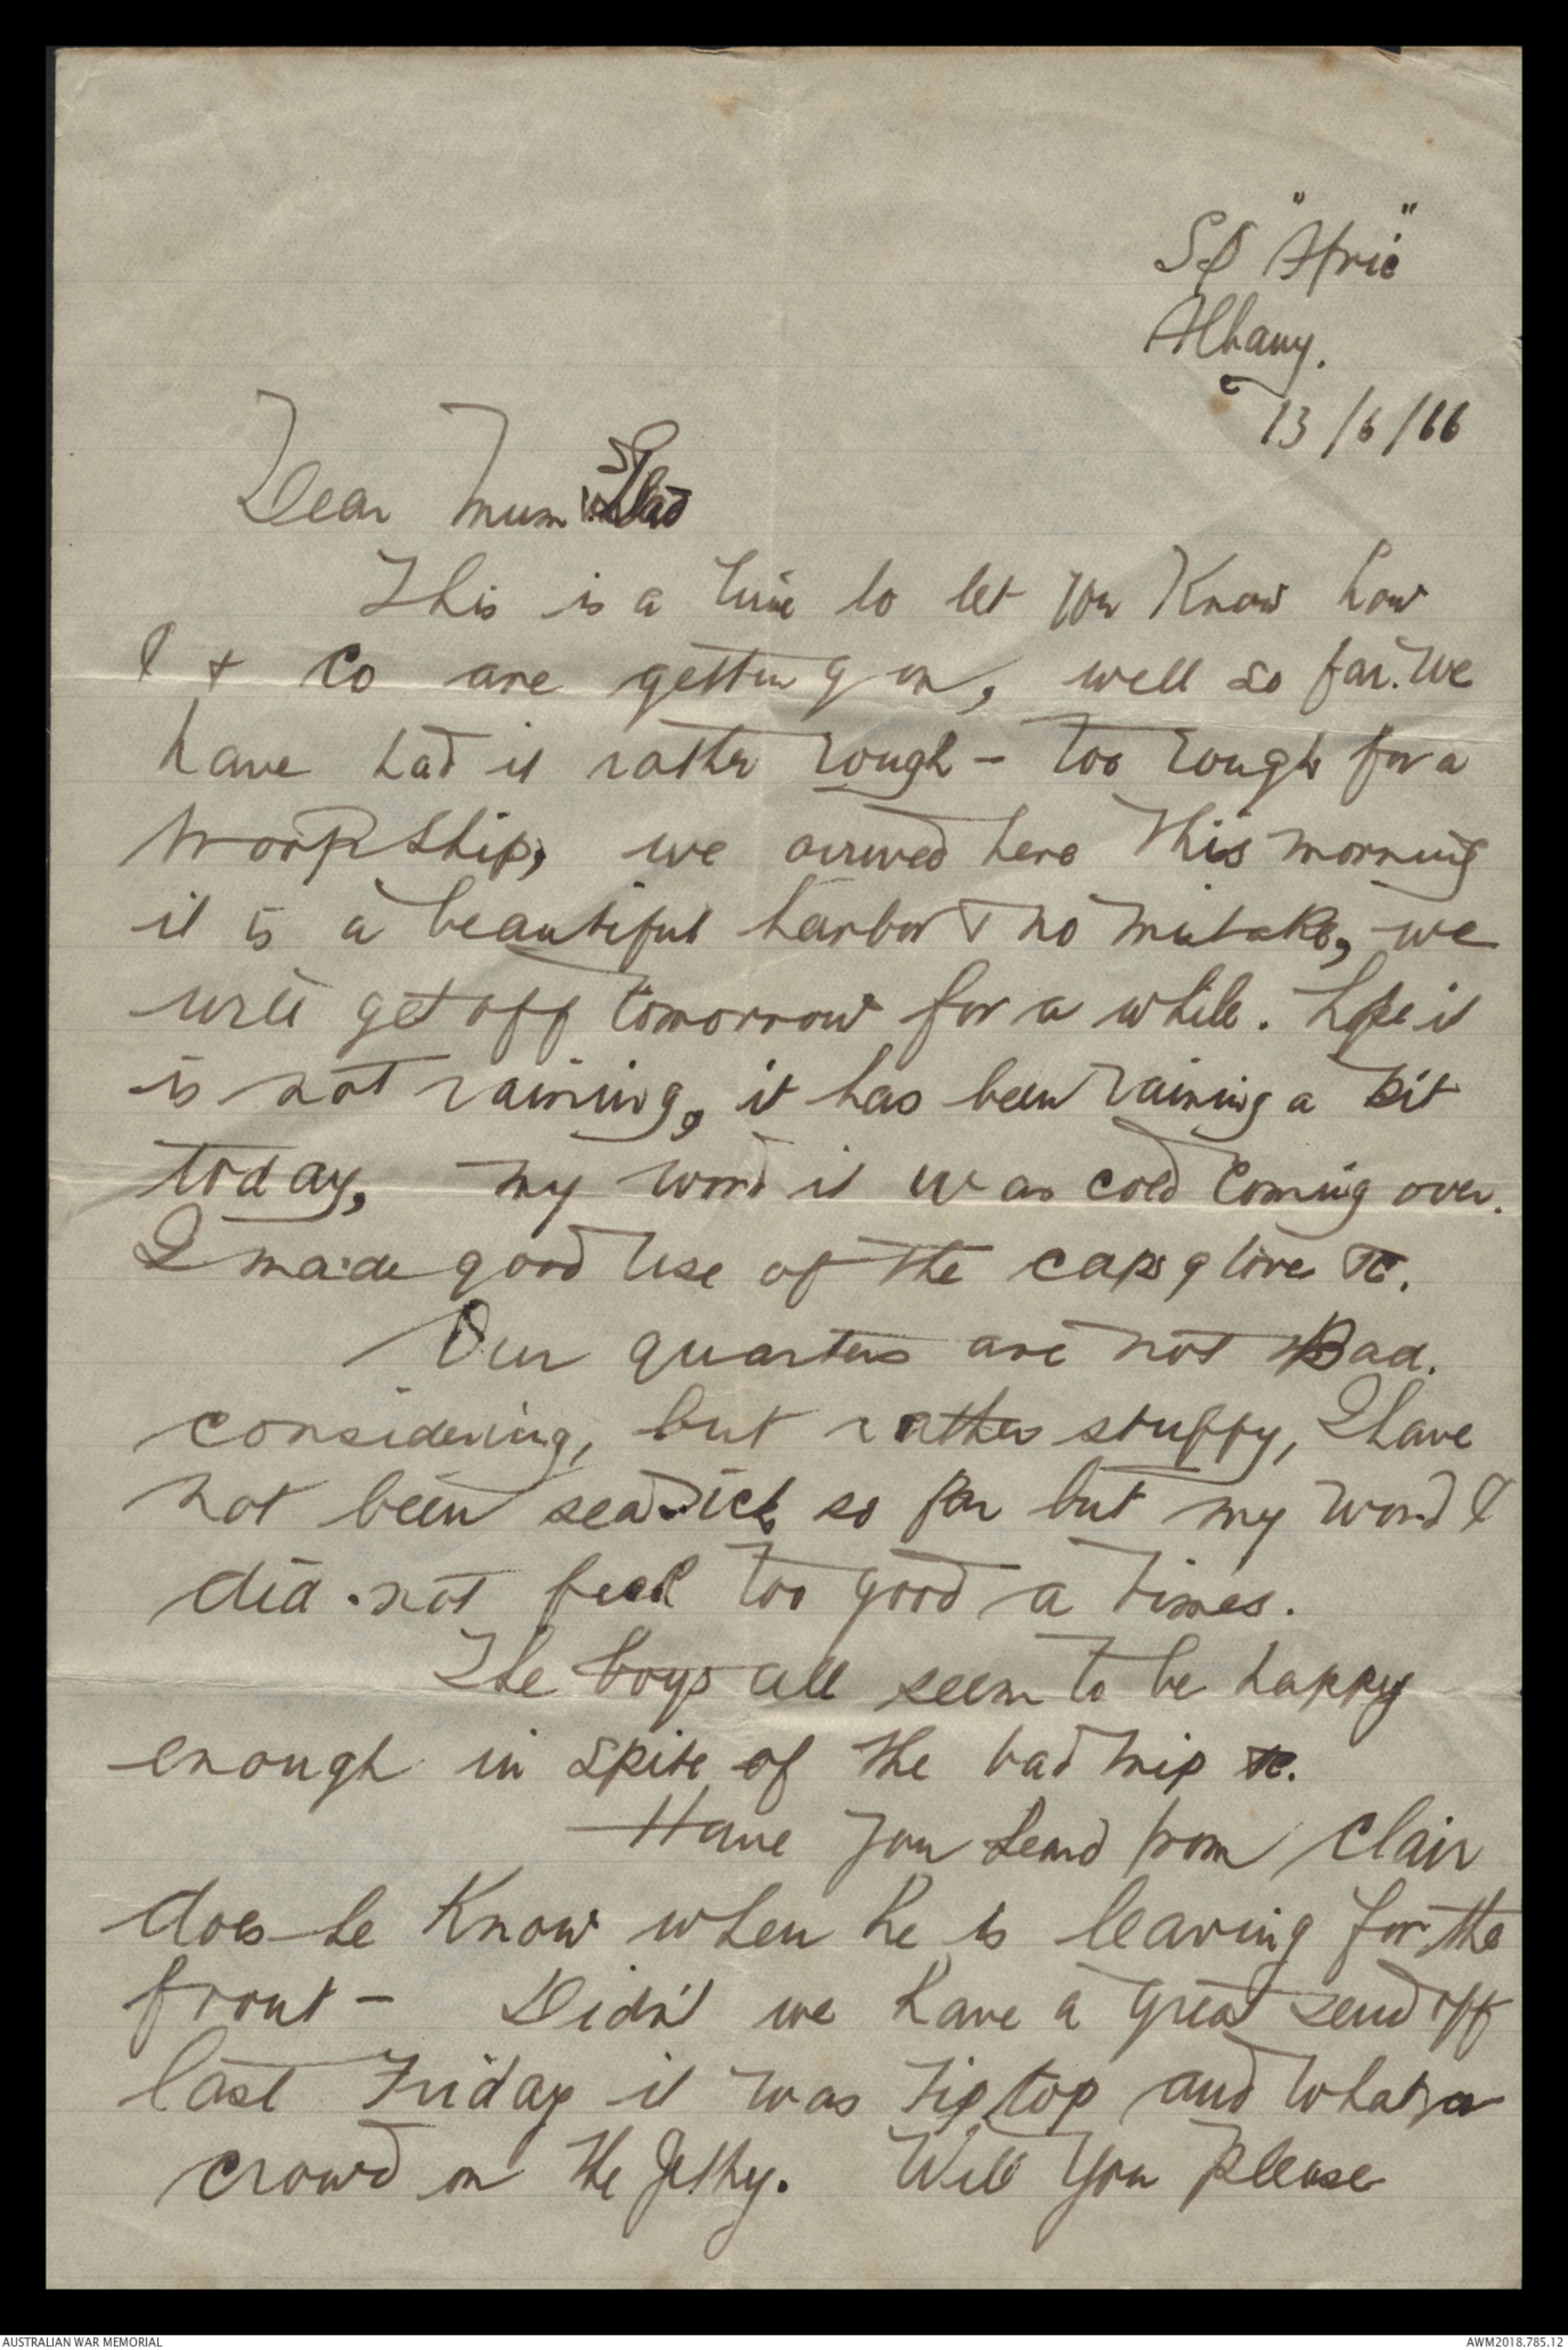 SS "Afric"
Albany.
13/6/16
Dear Mum & Dad
This is a line to let you Know how
I & Co are getting on, well so far. We
have had it rather rough - too rough for a
troopship, we arrived here this morning
it is a beautiful harbor & no mistake, we
will get off tomorrow for a while. hope it
is not raining, it has been raining a bit
today, my word it was cold coming over.
I made good use of the caps glove &c.
Our quarters are not Bad.
considering, but rather stuffy, I have
not been seasick so far but my word I
did not feel too good a times.
The boys all seem to be happy
enough in spite of the bad trip &c.
Have you heard from Clair
does he Know when he is leaving for the
front - Didn't we have a great send off
last Friday it was tip top and what a
crowd on the Jetty. Will you please
AUSTRALIAN WAR MEMORIAL
AWM2018.785.12